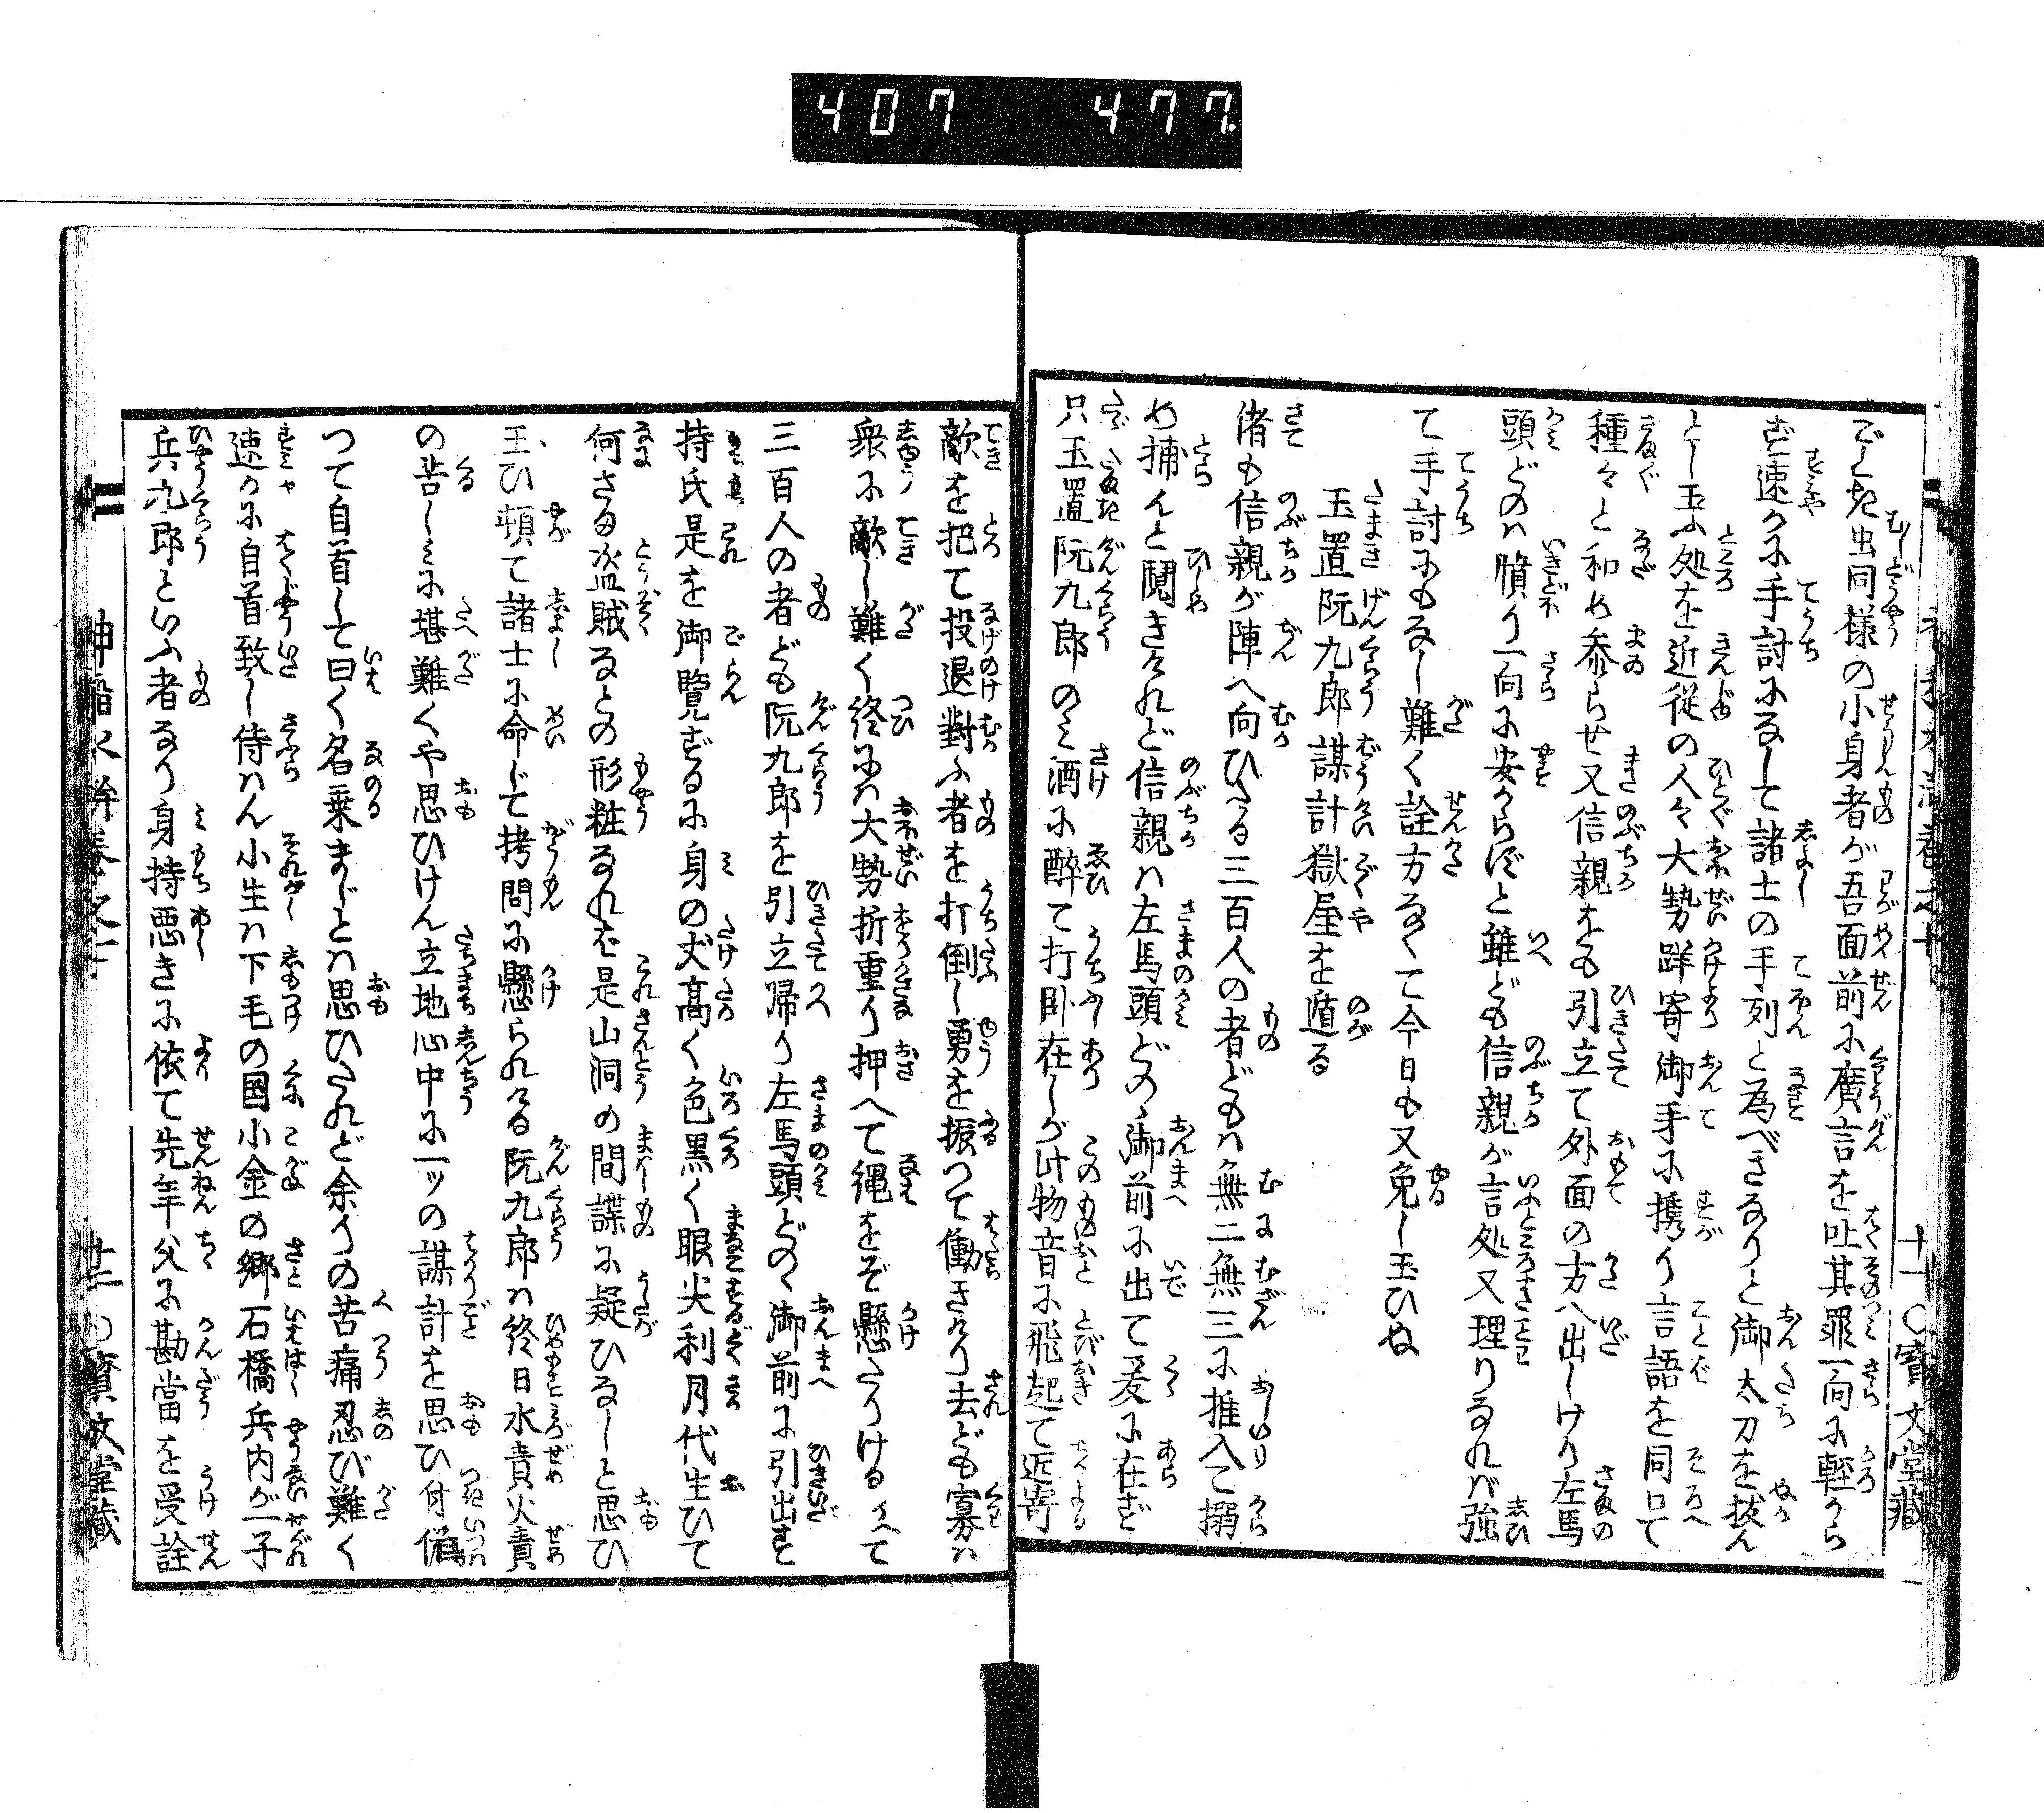 407 477.
でしき虫同様の小身者が吾面前に廣言を吐其罪一向に軽から
ず速かに手討になして諸士の手列と為べきなりと御太刀を抜ん
とし玉ふ処を近従の人々大勢跘寄御手に携り言語を同して
種々と和め参らせ又信親をも引立て外面の方へ出しけり左馬
頭どのハ憤り一向に安からずと雖ども信親が言処又理りなれバ強
て手討にもなし難く詮方なくて今日も又免し玉ひぬ
玉置阮九郎謀計獄屋を遁る
偖も信親が陣へ向ひたる三百人の者どもハ無二無三に推入て搦
め捕んと鬩きけれど信親ハ左馬頭どのゝ御前に出て爰に在ず
只玉置阮九郎のミ酒に醉て打卧在しが此物音に飛起て近寄
敵を把て投退對ふ者を打倒し勇を振つて働きけり去ども寡ハ
衆に敵し難く終にハ大勢折重り押へて縄をぞ懸たりけるかくて
三百人の者ども阮九郎を引立帰り左馬頭どのゝ御前に引出す
持氏是を御覧ずるに身の丈髙く色黒く眼尖利月代生ひて
何さま盗賊なるとの形粧なれば是山洞の間諜に疑ひなしと思ひ
玉ひ頓て諸士に命じて拷問に懸られける阮九郎ハ終日水責火責
の苦しミに堪難くや思ひけん立地心中に一ッの謀計を思ひ付偽
つて自首して曰く名乗まじとハ思ひたれど余りの苦痛忍び難く
速かに自首致し侍はん小生ハ下毛の国小金の郷石橋兵内が一子
兵九郎といふ者なり身持悪きに依て先年父に勘當を受詮
十一 〇寳文堂藏